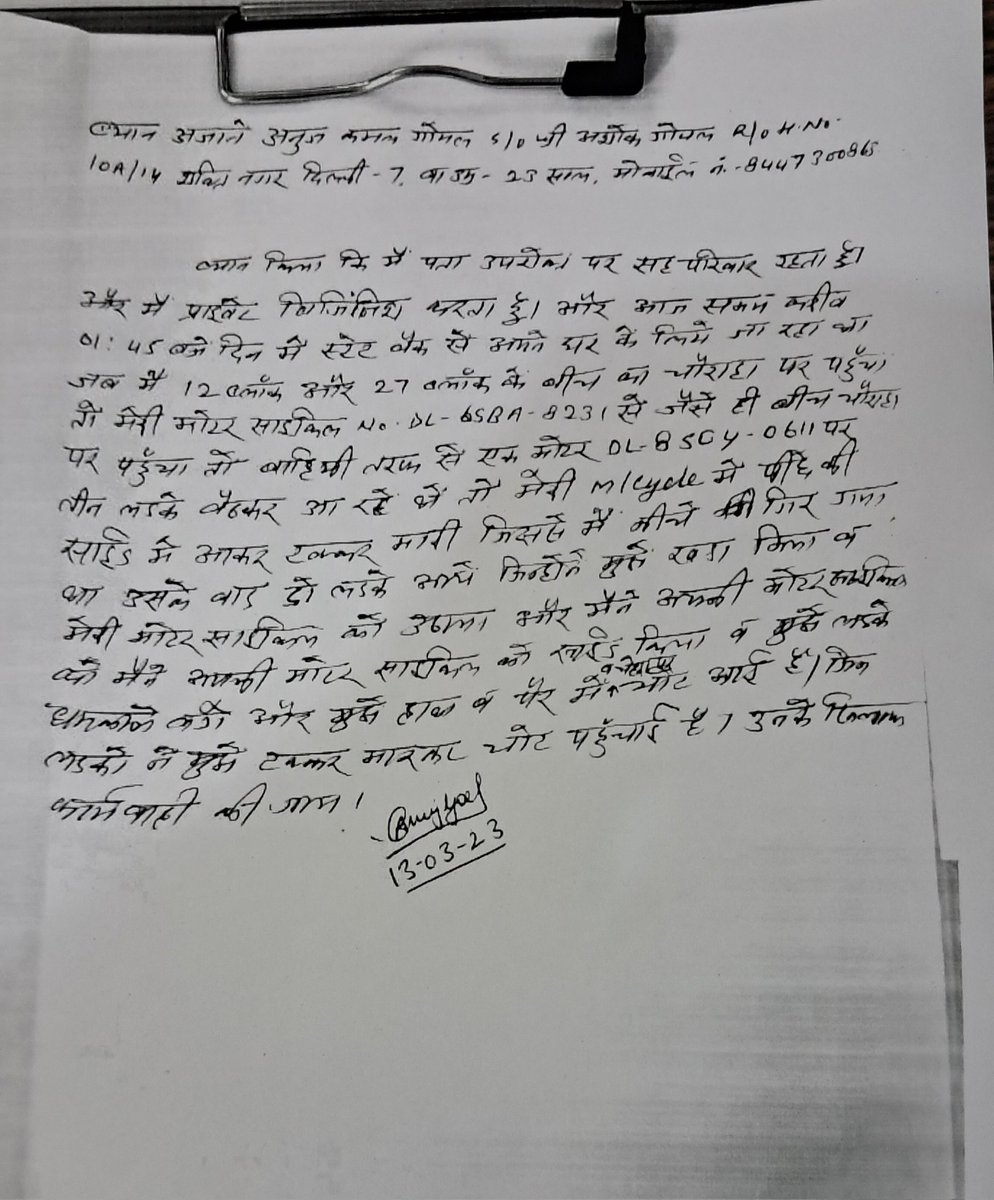 ब्यान अजाने अनुज कमल गोयल S/o श्री अशोक गोयल R/o H.No.
10A/14 शक्ति नगर दिल्ली-7, बाउम्र-23 साल, मोबाईल नं.-8447300865
ब्यान किया कि मैं पता उपरोक्त पर सह परिवार रहता हूँ।
और मैं प्राईवेट करता हूँ। और आज समय करीब
01:45 बजे दिन में स्टेट बैंक से अपने घर के लिये जा रहा था
जब मैं 12 ब्लॉक और 27 ब्लॉक के बीच का चौराहा पर पहुँचा
तो मेरी मोटर साइकिल No. DL-6SBA-8231 से जैसे ही बीच चौराहा
पर पहुँचा तो तरफ से एक मोटर DL-8SCY-0611 पर
तीन लडके बैठकर आ रहे थे तो मेरी m/cycle में पीछे की
साईड में आकर टक्कर मारी जिससे मैं नीचे गिर गया
था उसके बाद दो लडके आये जिन्होंने मुझे खडा किया व
मेरी मोटर साइकिल को उठाया और मैंने अपनी मोटर साइकिल
को मैंने अपनी मोटर साइकिल को साईड किया व मुझे लडके
धमकाने लगे और मुझे हाथ व पैर में चोट आई है। जिन
लडको ने मुझे टक्कर मारकर चोट पहुँचाई है। उनके खिलाफ
कार्यवाही की जाय।
13-03-23